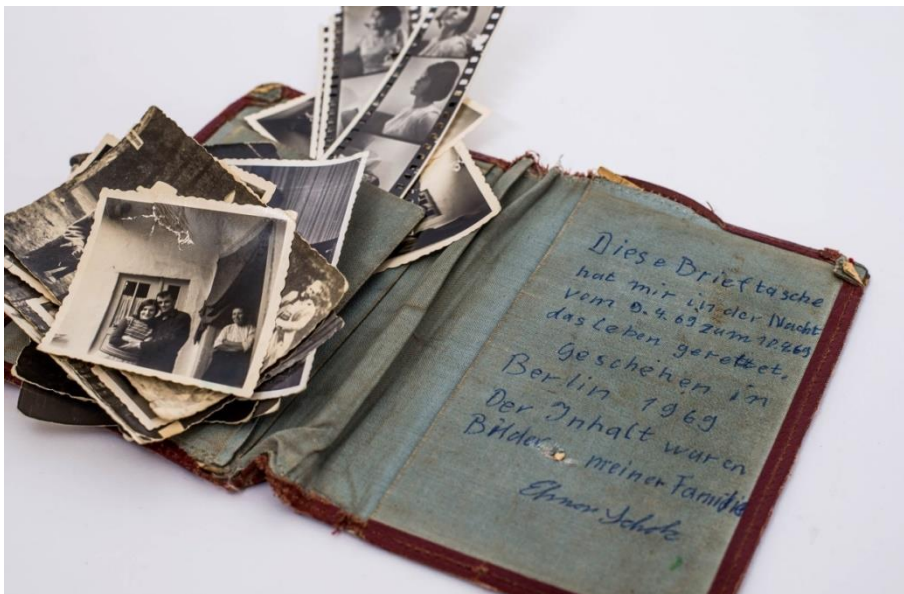 Diese Brieftasche
hat mir in der Nacht
vom 9.4.69 zum 10.4.69
das Leben gerettet.
Geschehen in
Berlin 1969
Der Inhalt waren
Bilder meiner Familie
Scholz